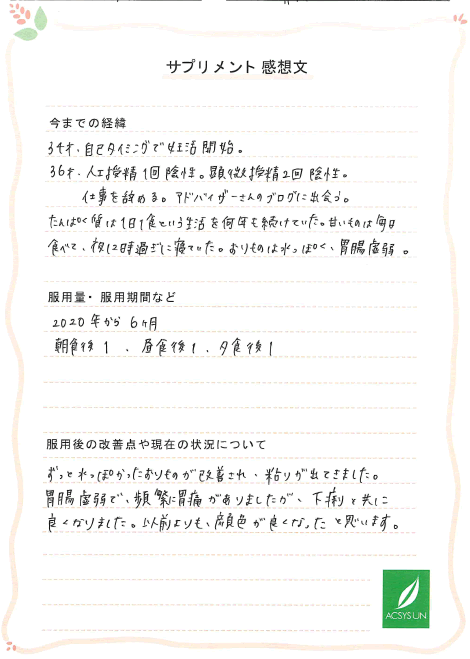 サプリメント 感想文
今までの経緯
34才、自己タイミングで妊活開始。
36才、人工授精1回陰性。顕微授精2回陰性。
仕事を辞める。アドバイザーさんのブログに出会う。
たんぱく質は1日1食という生活を何年も続けていた。甘いものは毎日
食べて、夜12時過ぎに寝ていた。おりものは水っぽく、胃腸虚弱。
服用量・服用期間など
2020年から6ヶ月
朝食後1、昼食後1、夕食後1
服用後の改善点や現在の状況について
ずっと水っぽかったおりものが改善され、粘りが出てきました。
胃腸虚弱で、頻繁に胃痛がありましたが、下痢と共に
良くなりました。以前よりも、顔色が良くなったと思います。
ACSYS LIN